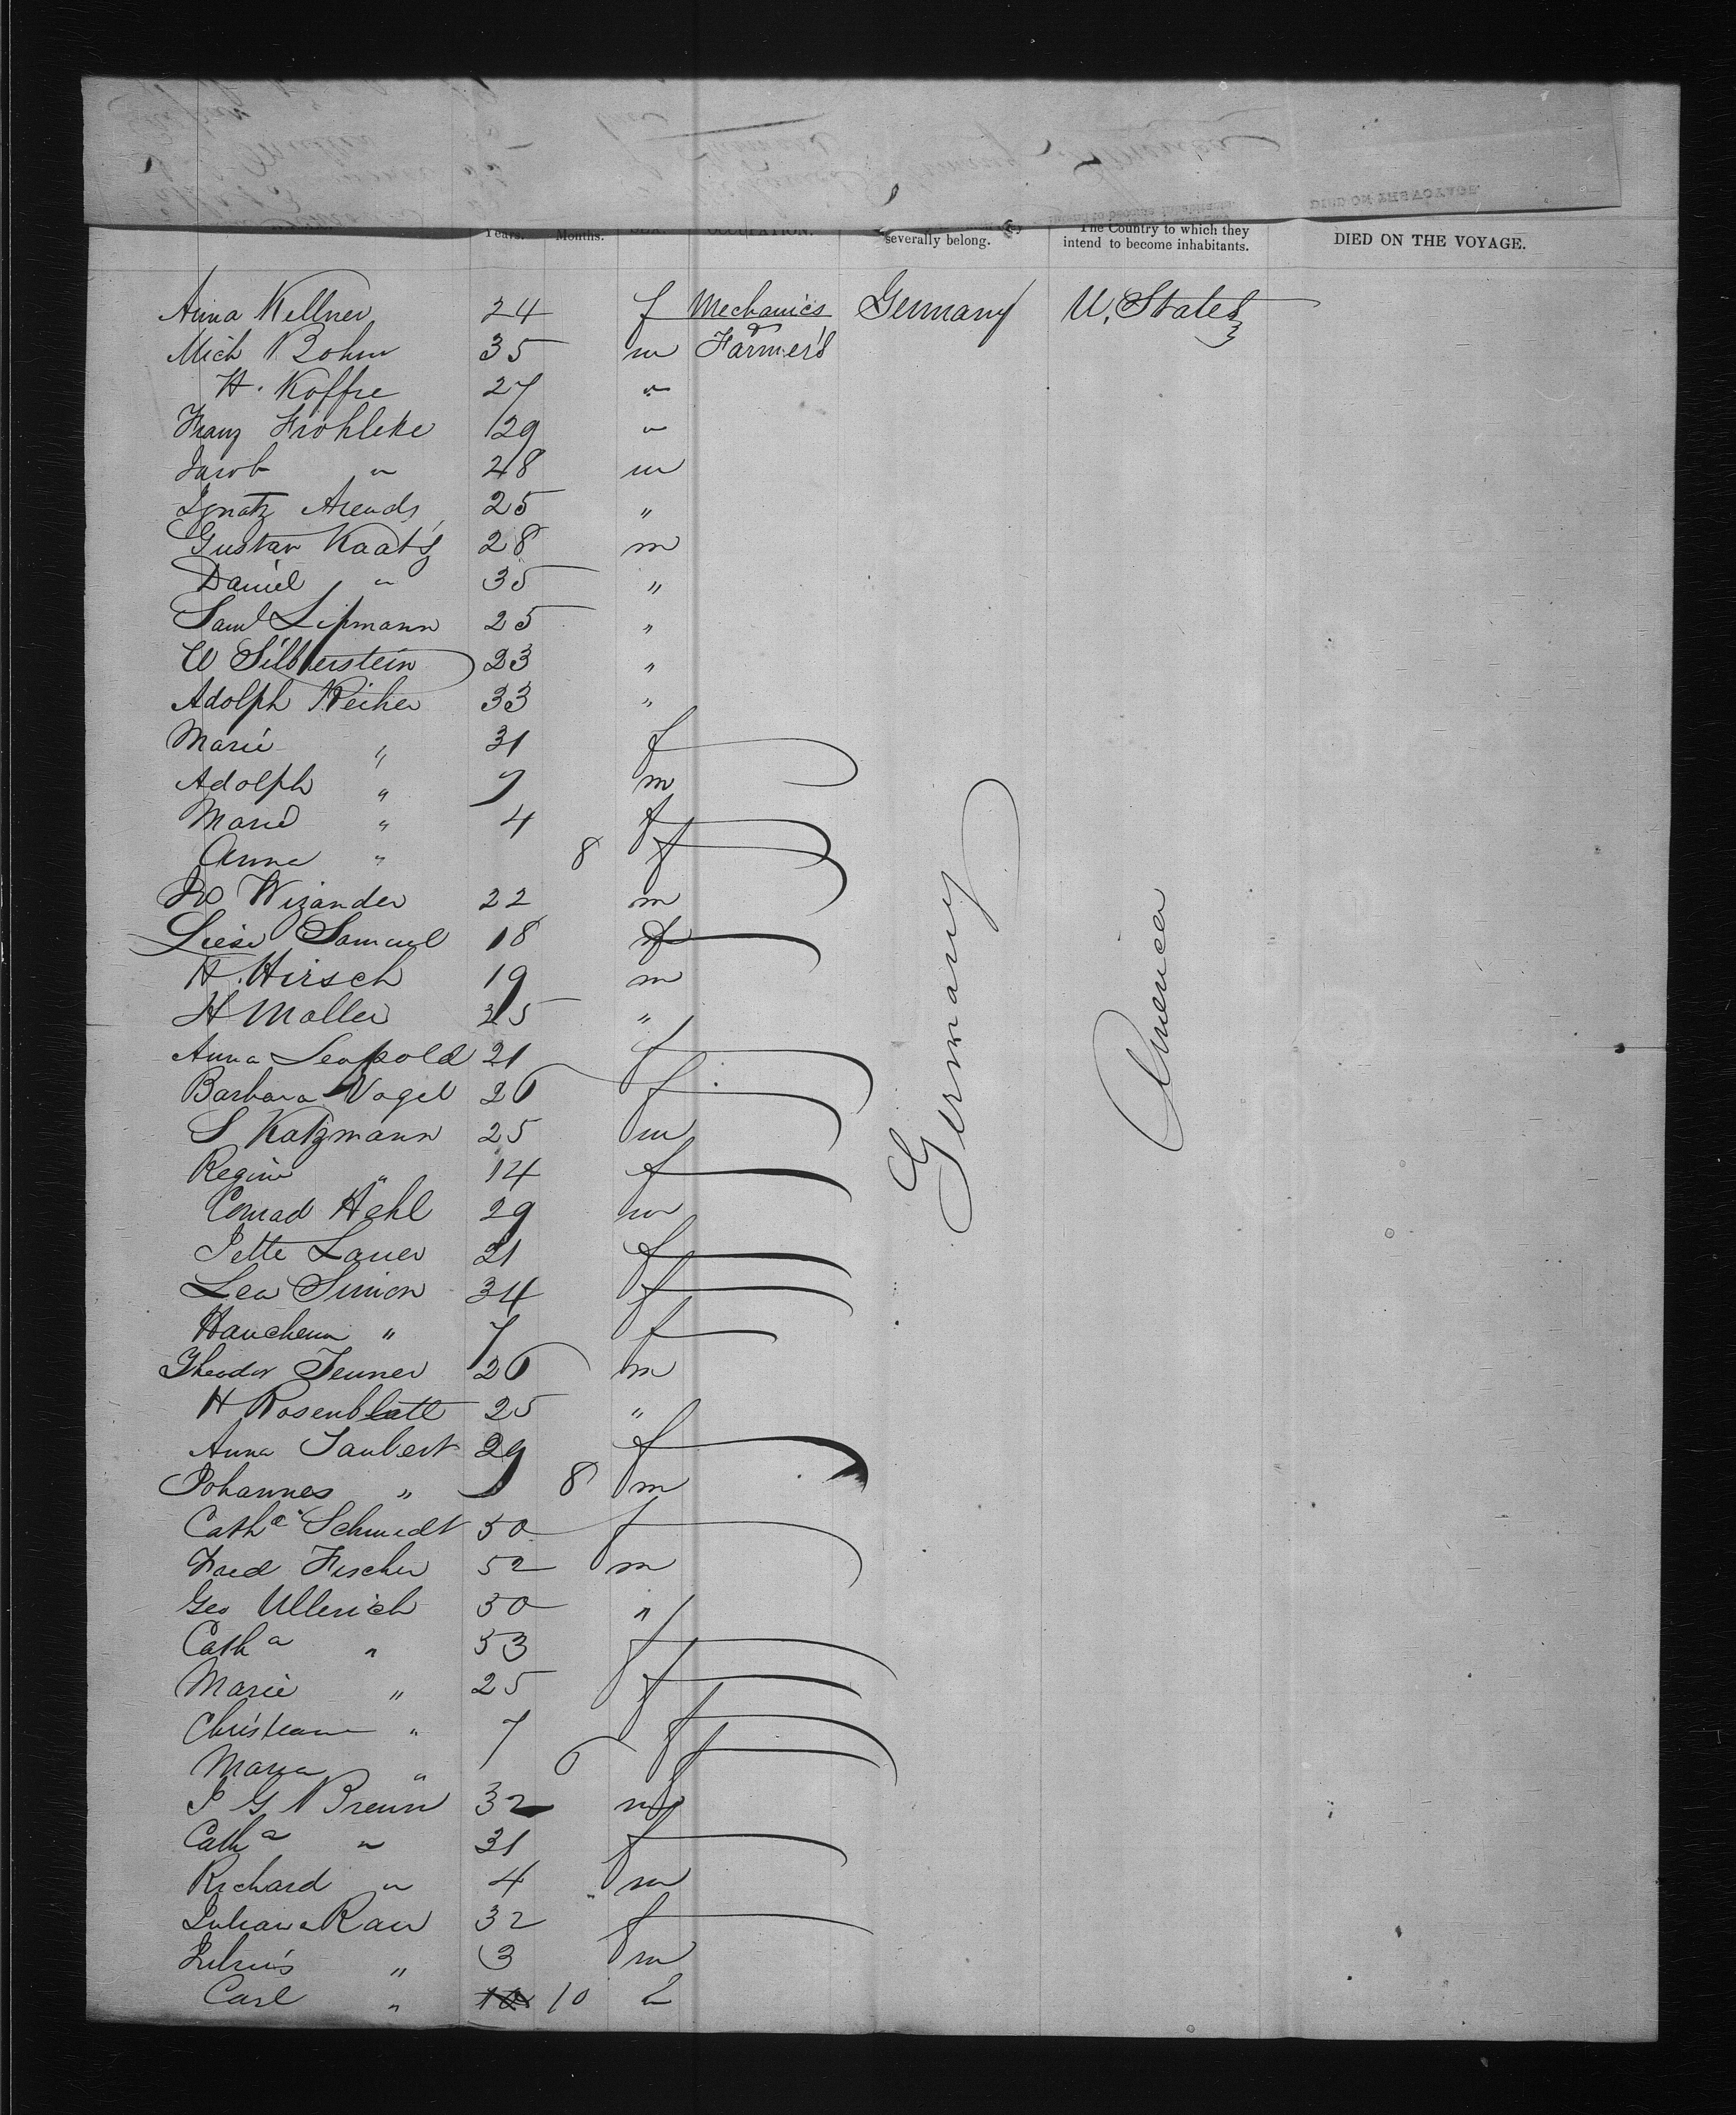 Years. Months. OCCUPATION. severally belong. The Country to which they intend to become inhabitants. DIED ON THE VOYAGE.
Anna Kellner 24 f Mechanics Germany U. States
Mich Bohm 35 m & Farmers
H. Koffre 27 "
Franz Frohleke 29 "
Jacob " 28 m
Ignatz Arends 25 "
Gustav Kaatz 28 m
Daniel " 35 "
Saml Lipmann 25 "
W Silberstein 23 "
Adolph Reiher 33 "
Marie " 31 f
Adolph " 7 m
Marie " 4 f
Anna " 8 f
Wizander 22 m
Liese Samuel 18 f
H. Hirsch 19 m
H Moller 25 "
Anna Leopold 21 f
Barbara Vogel 26 f
S Katzmann 25 m
Regine " 14 f
Conrad Hehl 29 m
Jette Lauer 21 f
Lea Simon 34 f
Hanchen " 7 f
Theodor Jenner 26 m
H Rosenblatt 25 "
Anna Taubert 29 f
Johannes " 8 m
Catha Schmidt 50 f
Fred Fischer 52 m
Geo Ullerich 50 "
Catha " 53 f
Marie " 25 f
Christiane " 7 f
Maria " 6 f
J G Breun 32 m
Catha " 31 f
Richard " 4 m
Juliane Rau 32 f
Julius " 3 m
Carl " 10
Germany
America